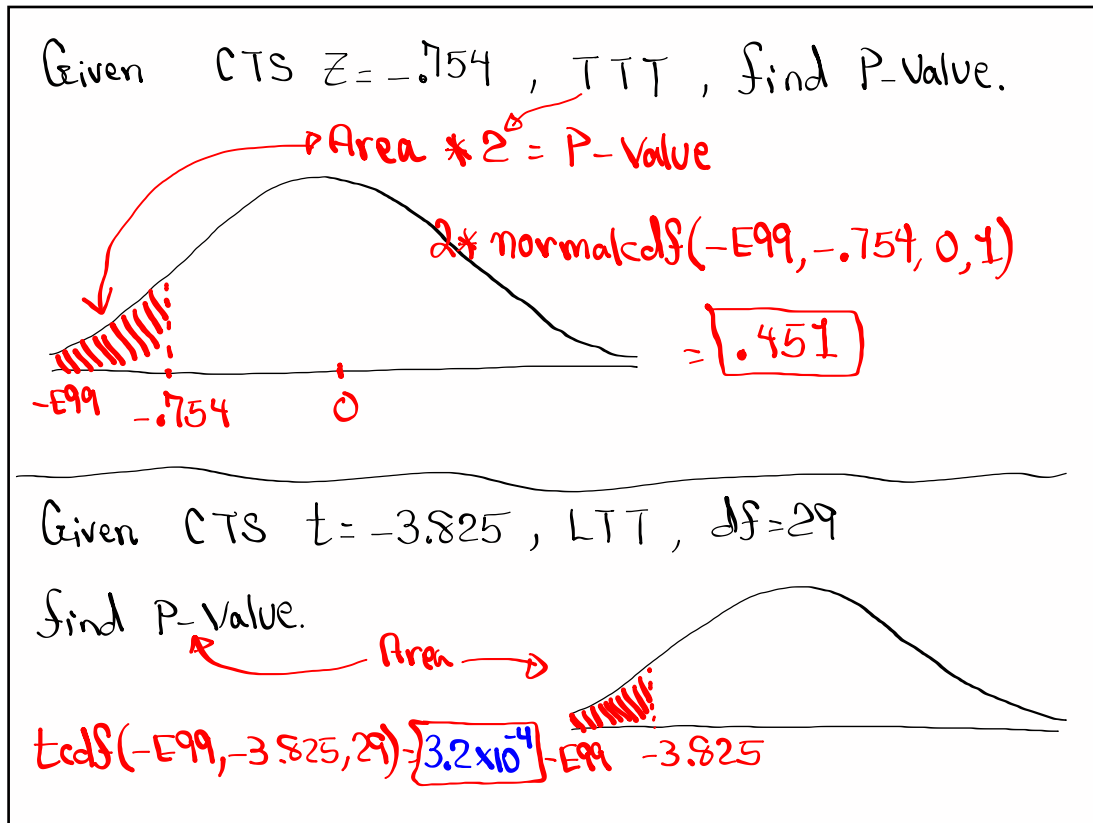 Given CTS Z=-.754, TTT, find P-Value.
Area * 2 = P-Value
2* normalcdf(-E99, -.754, 0, 1)
= .451
-E99 -.754 0
Given CTS t=-3.825, LTT, df=29
find P-Value.
Area
tcdf(-E99,-3.825,29)=3.2x10⁻⁴
-E99 -3.825